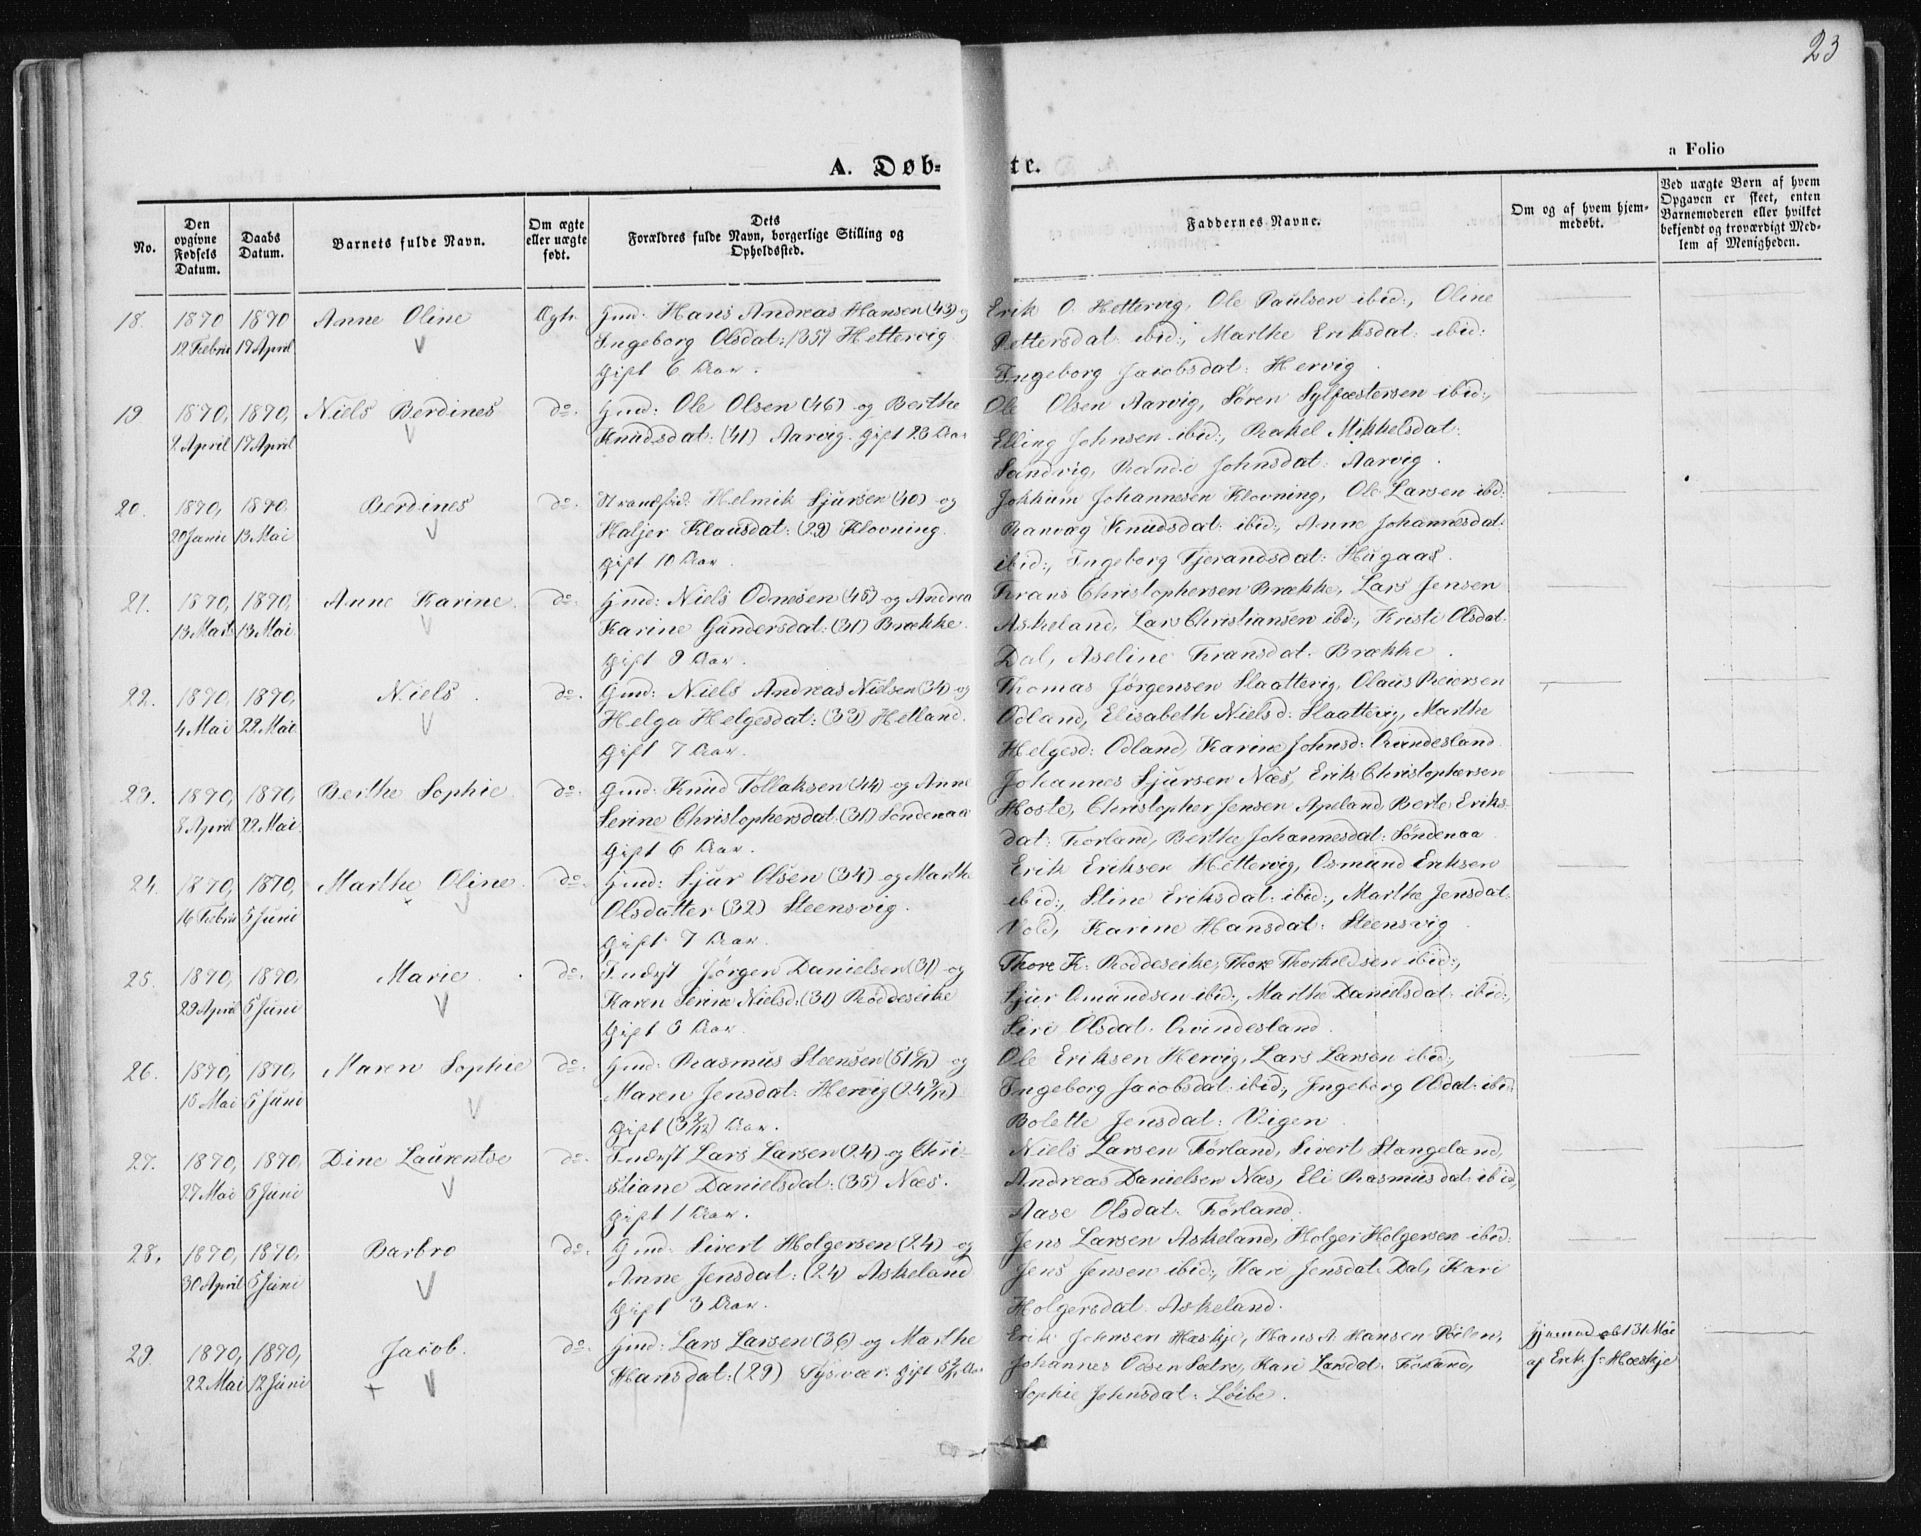 23
a Folio
A. Døb=
te.
No.
Den opgivne Fødsels Datum.
Daabs Datum.
Barnets fulde Navn.
Om ægte eller uægte født.
Dets Forældres fulde Navn, borgerlige Stilling og Opholdssted.
Faddernes Navne.
Om og af hvem hjem-
medøbt.
Ved uægte Børn af hvem
Opgaven er skeet, enten
Barnemoderen eller hvilket
bekjendt og troværdigt Med-
lem af Menigheden.
18. 1870 1870 Anne Oline Ægte. Gmd: Hans Andreas Hansen (43) og Erik O. Hettervig, Ole Paulsen ibid:, Oline
12 Febru 17 April Ingeborg Olsdat: (35) Hettervig. Pettersdat: ibid:, Marthe Eriksdat: ibid:
Gift 6 Aar. Ingeborg Jacobsdat: Hervig
19 1870, 1870, Niels Berdines do. Gmd: Ole Olsen (46) og Berthe Ole Olsen Aarvig, Søren Sylfæstersen ibid:,
2 April 17 April Knudsdat: (41) Aarvig. Gift 23 Aar Elling Johnsen ibid:, Rakel Mikkelsdat:
Sandvig, Randi Johnsdat: Aarvig.
20. 1870, 1870 Berdines do. Strandsid: Helmik Sjursen (40) og Jokkum Johannesen Klovning, Ole Larsen ibid:
20 Janu 13 Mai Haljer Klausdat: (29) Klovning. Ranvag Knudsdat: ibid:, Anne Johannesdat:
Gift 10 Aar. ibid:, Ingeborg Tjerandsdat: Hugaas.
21. 1870, 1870, Anne Karine. do. Gmd: Niels Odnesen (45) og Andrea Frans Christophersen Brække, Lars Jensen
13 Mart 13 Mai Karine Gundersdat: (31) Brække. Askeland, Lars Christiansen ibid:, Kristi Olsdat:
Gift 9 Aar. Dal, Aseline Fransdat: Brække.
22. 1870, 1870, Niels. do. Gmd: Niels Andreas Nielsen (34) og Thomas Jørgensen Slaattevig, Olaus Reiersen
4 Mai 22 Mai Helga Helgesdat: (33) Hetland. Odland, Elisabeth Nielsd: Slaattevig, Marthe
Gift 7 Aar. Helgesd: Odland, Karine Johnsd: Qvindesland
23. 1870, 1870, Berthe Sophie. do. Gmd: Knud Tollaksen (44) og Anne Johannes Sjursen Næs, Erik Christophersen
8 April 22 Mai Serine Christophersdat (31) Sondenaa Hoste, Christopher Jensen Apeland, Berte Eriks-
Gift 6 Aar. dat: Førland, Berthe Johannesdat: Søndenaa
24. 1870, 1870, Marthe Oline. do. Gmd: Sjur Olsen (34) og Marthe Erik Eriksen Hettervig, Osmund Eriksen
16 Febru 5 Juni Olsdatter (32) Steensvig. ibid:, Stine Eriksdat: ibid:, Marthe Jensdat:
Gift 7 Aar. Vold, Karine Hansdat: Steensvig
25. 1870, 1870, Marie. do. Inderst Jørgen Danielsen (31) og Thore K: Roddeseike, Thore Thorkildsen ibid:,
23 April 5 Juni Karen Serine Nielsd: (31) Røddeseike Sjur Osmundsen ibid:, Marthe Danielsdat: ibid:,
Gift 3 Aar. Siri Olsdat: Qvindesland.
26. 1870, 1870, Maren Sophie do. Gmd: Rasmus Steensen (51 6/12) og Ole Eriksen Hervig, Lars Larsen ibid:,
15 Mai 5 Juni Maren Jensdat: Hervig (24 9/12) Ingeborg Jacobsdat: ibid:, Ingeborg Olsdat: ibid:
Gift (3 2/12) Aar. Bolette Jensdat: Vigen
27. 1870, 1870, Dine Laurentse do. Inderst Lars Larsen (24) og Chri- Niels Larsen Førland, Sivert Stangeland,
27 Mai 6 Juni stiane Danielsdat: (35) Næs. Andreas Danielsen Næs, Eli Rasmusdat: ibid,
Gift 1 Aar. Aase Olsdat: Førland.
28. 1870, 1870, Barbro do. Gmd: Sivert Holgersen (24) og Jens Larsen Askeland, Holger Holgersen ibid:
30 April 5 Juni Anne Jensdat: (24) Askeland Jens Jensen ibid:, Kari Jensdat: Dal, Kari
Gift 3 Aar. Holgersdat: Askeland.
29. 1870, 1870, Jacob. do. Gmd: Lars Larsen (36) og Marthe Erik Johnsen Hæskje, Hans A. Hansen hjemmed. 31 Mai
22 Mai 12 Juni Hansdat: (29) Sysvær. Gift Johannes Odsen Sætre, Kari Larsdat: Førland, af Erik J: Hæskje
Sophie Johnsdat: Løibe.